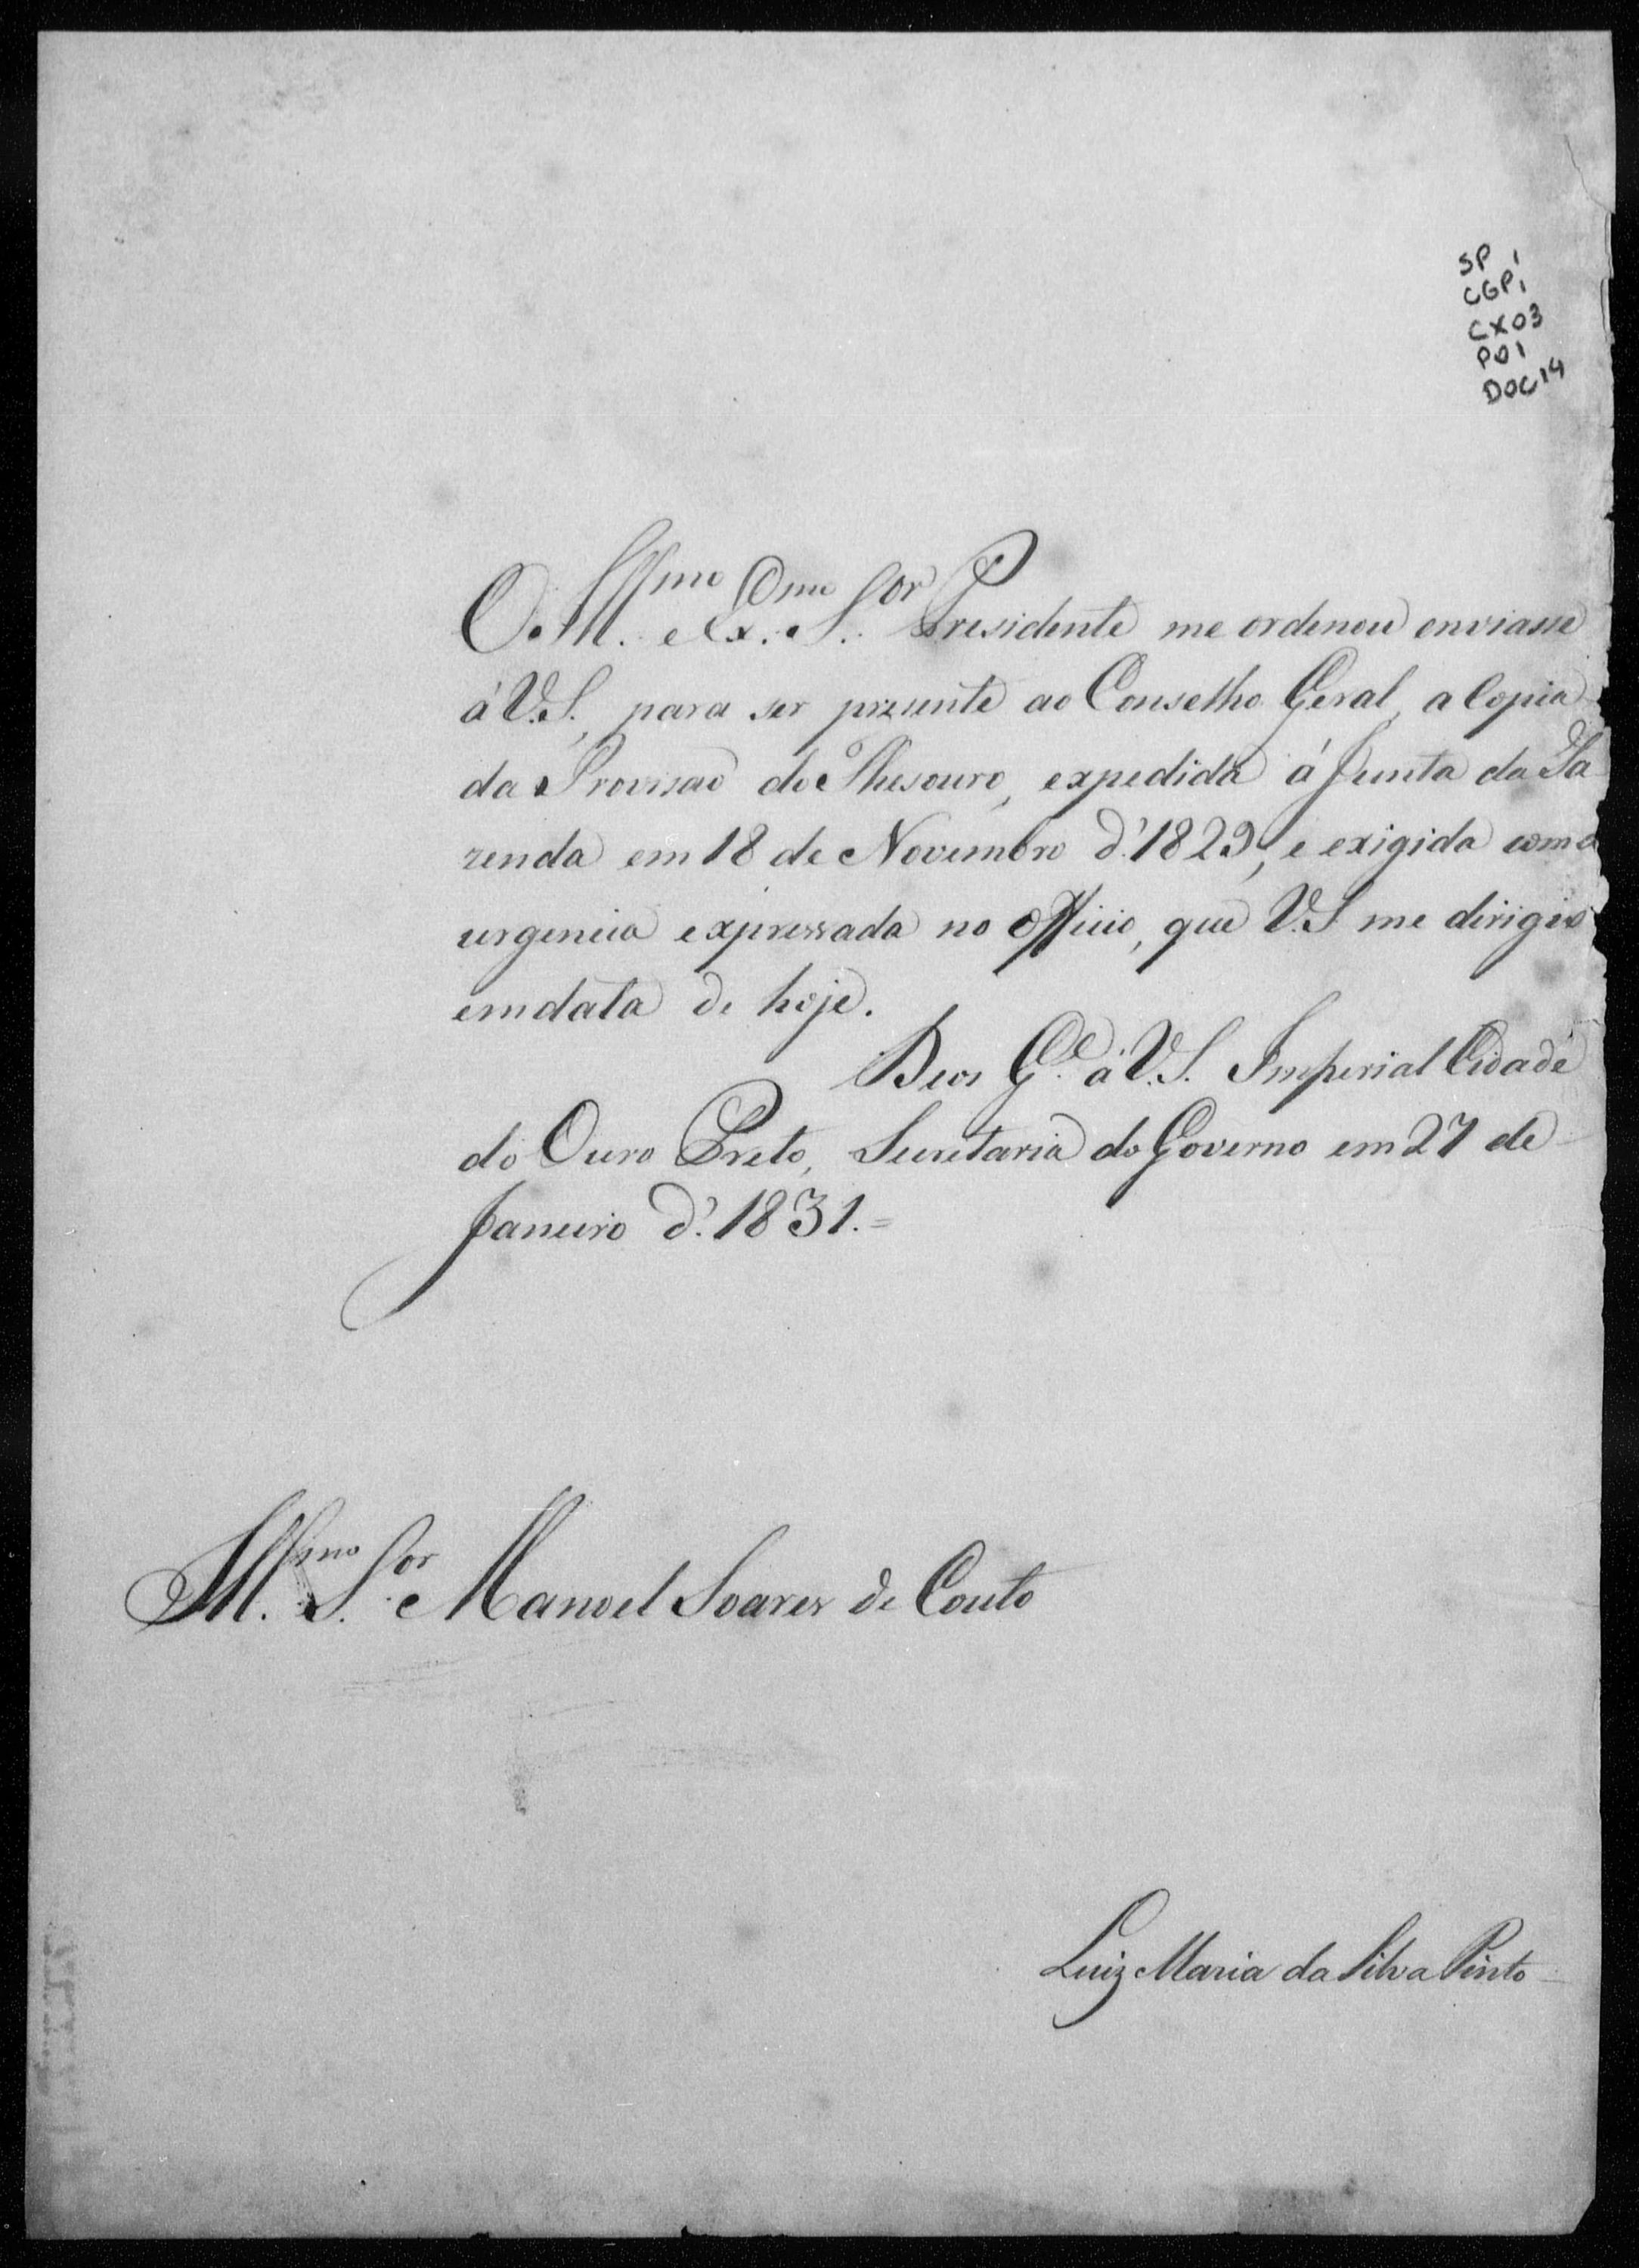 SP 1
CGP1
CX03
P01
DOC 14
O Ill.mo e Ex.mo S.or Presidente me ordenou enviasse
á V.S., para ser prezente ao Conselho Geral, a Copia
da Provisaõ do Thesouro, expedida á Junta da Fa
zenda em 18 de Novembro d'1829, e exigida com a
urgencia expressada no Officio, que V.S me dirigio
em data de hoje.
Deos G.e á V.S. Imperial Cidade
do Ouro Preto, Secretaria do Governo em 27 de
Janeiro d'.1831.=
Ill.mo S.or Manoel Soares de Couto
Luiz Maria da Silva Pinto